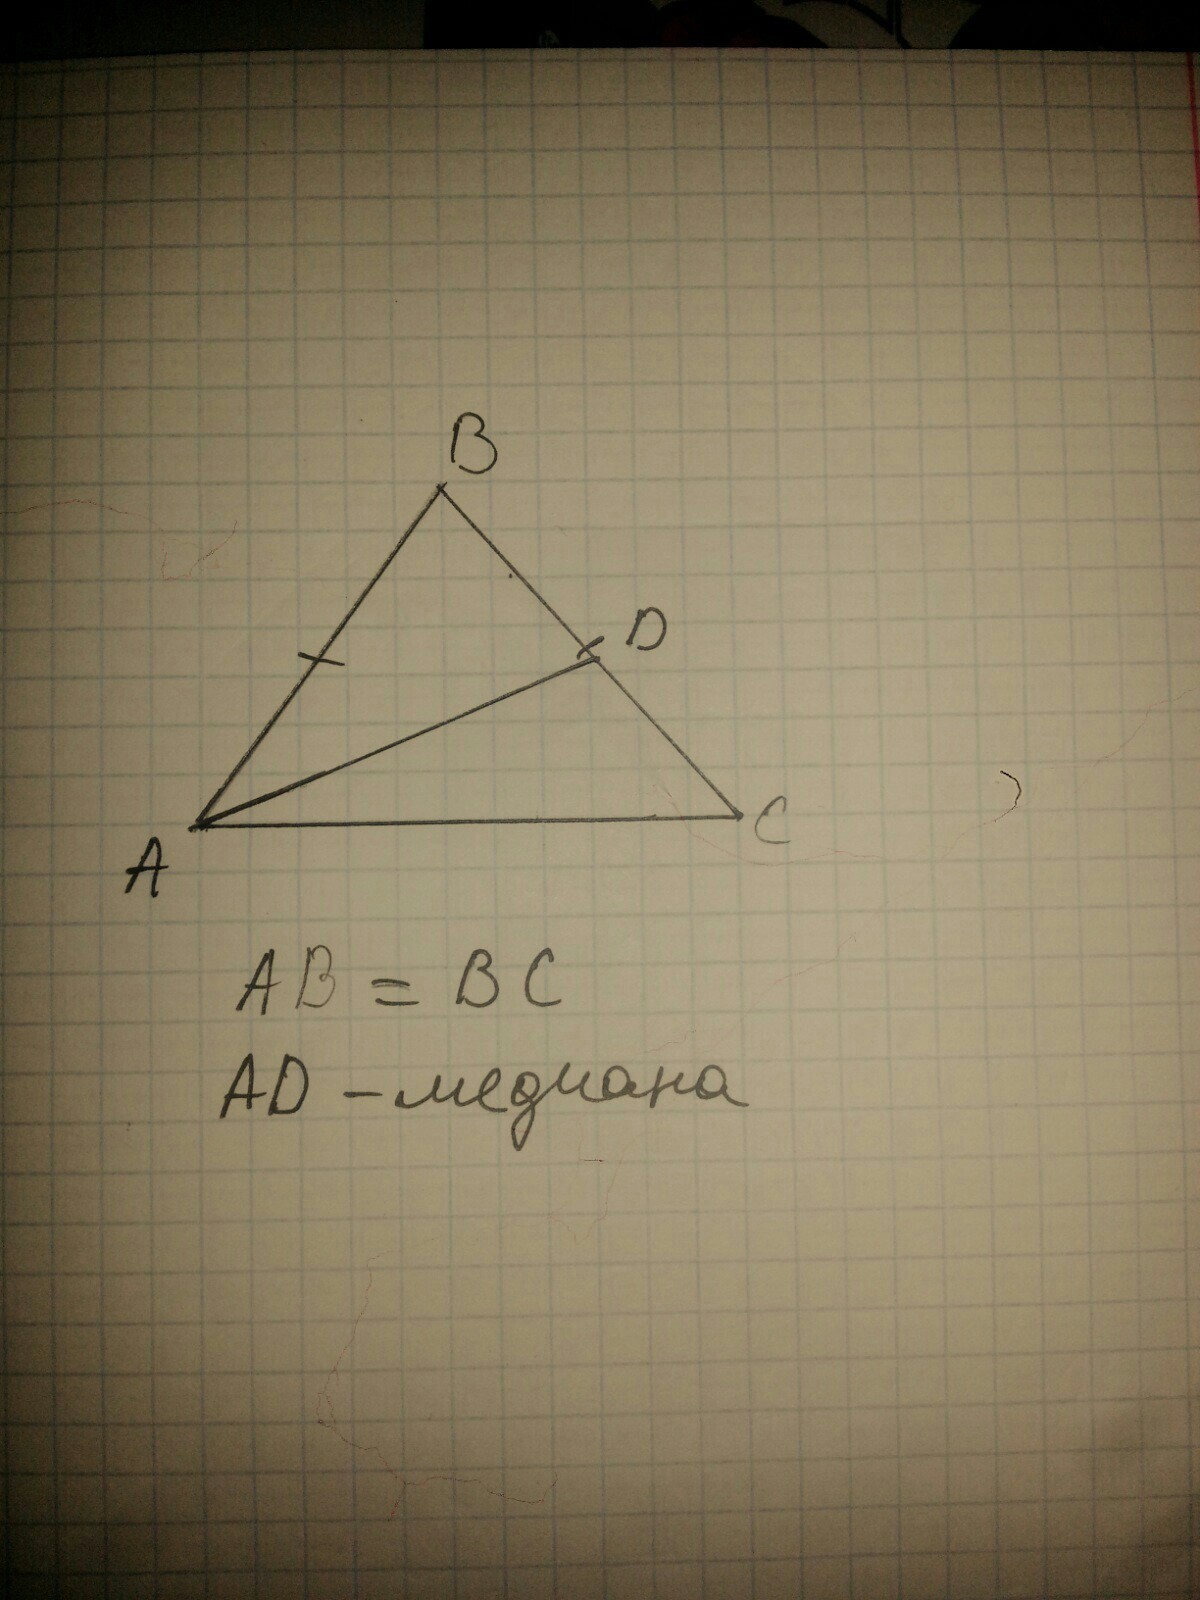 B
D
A
C
AB = BC
AD – медиана